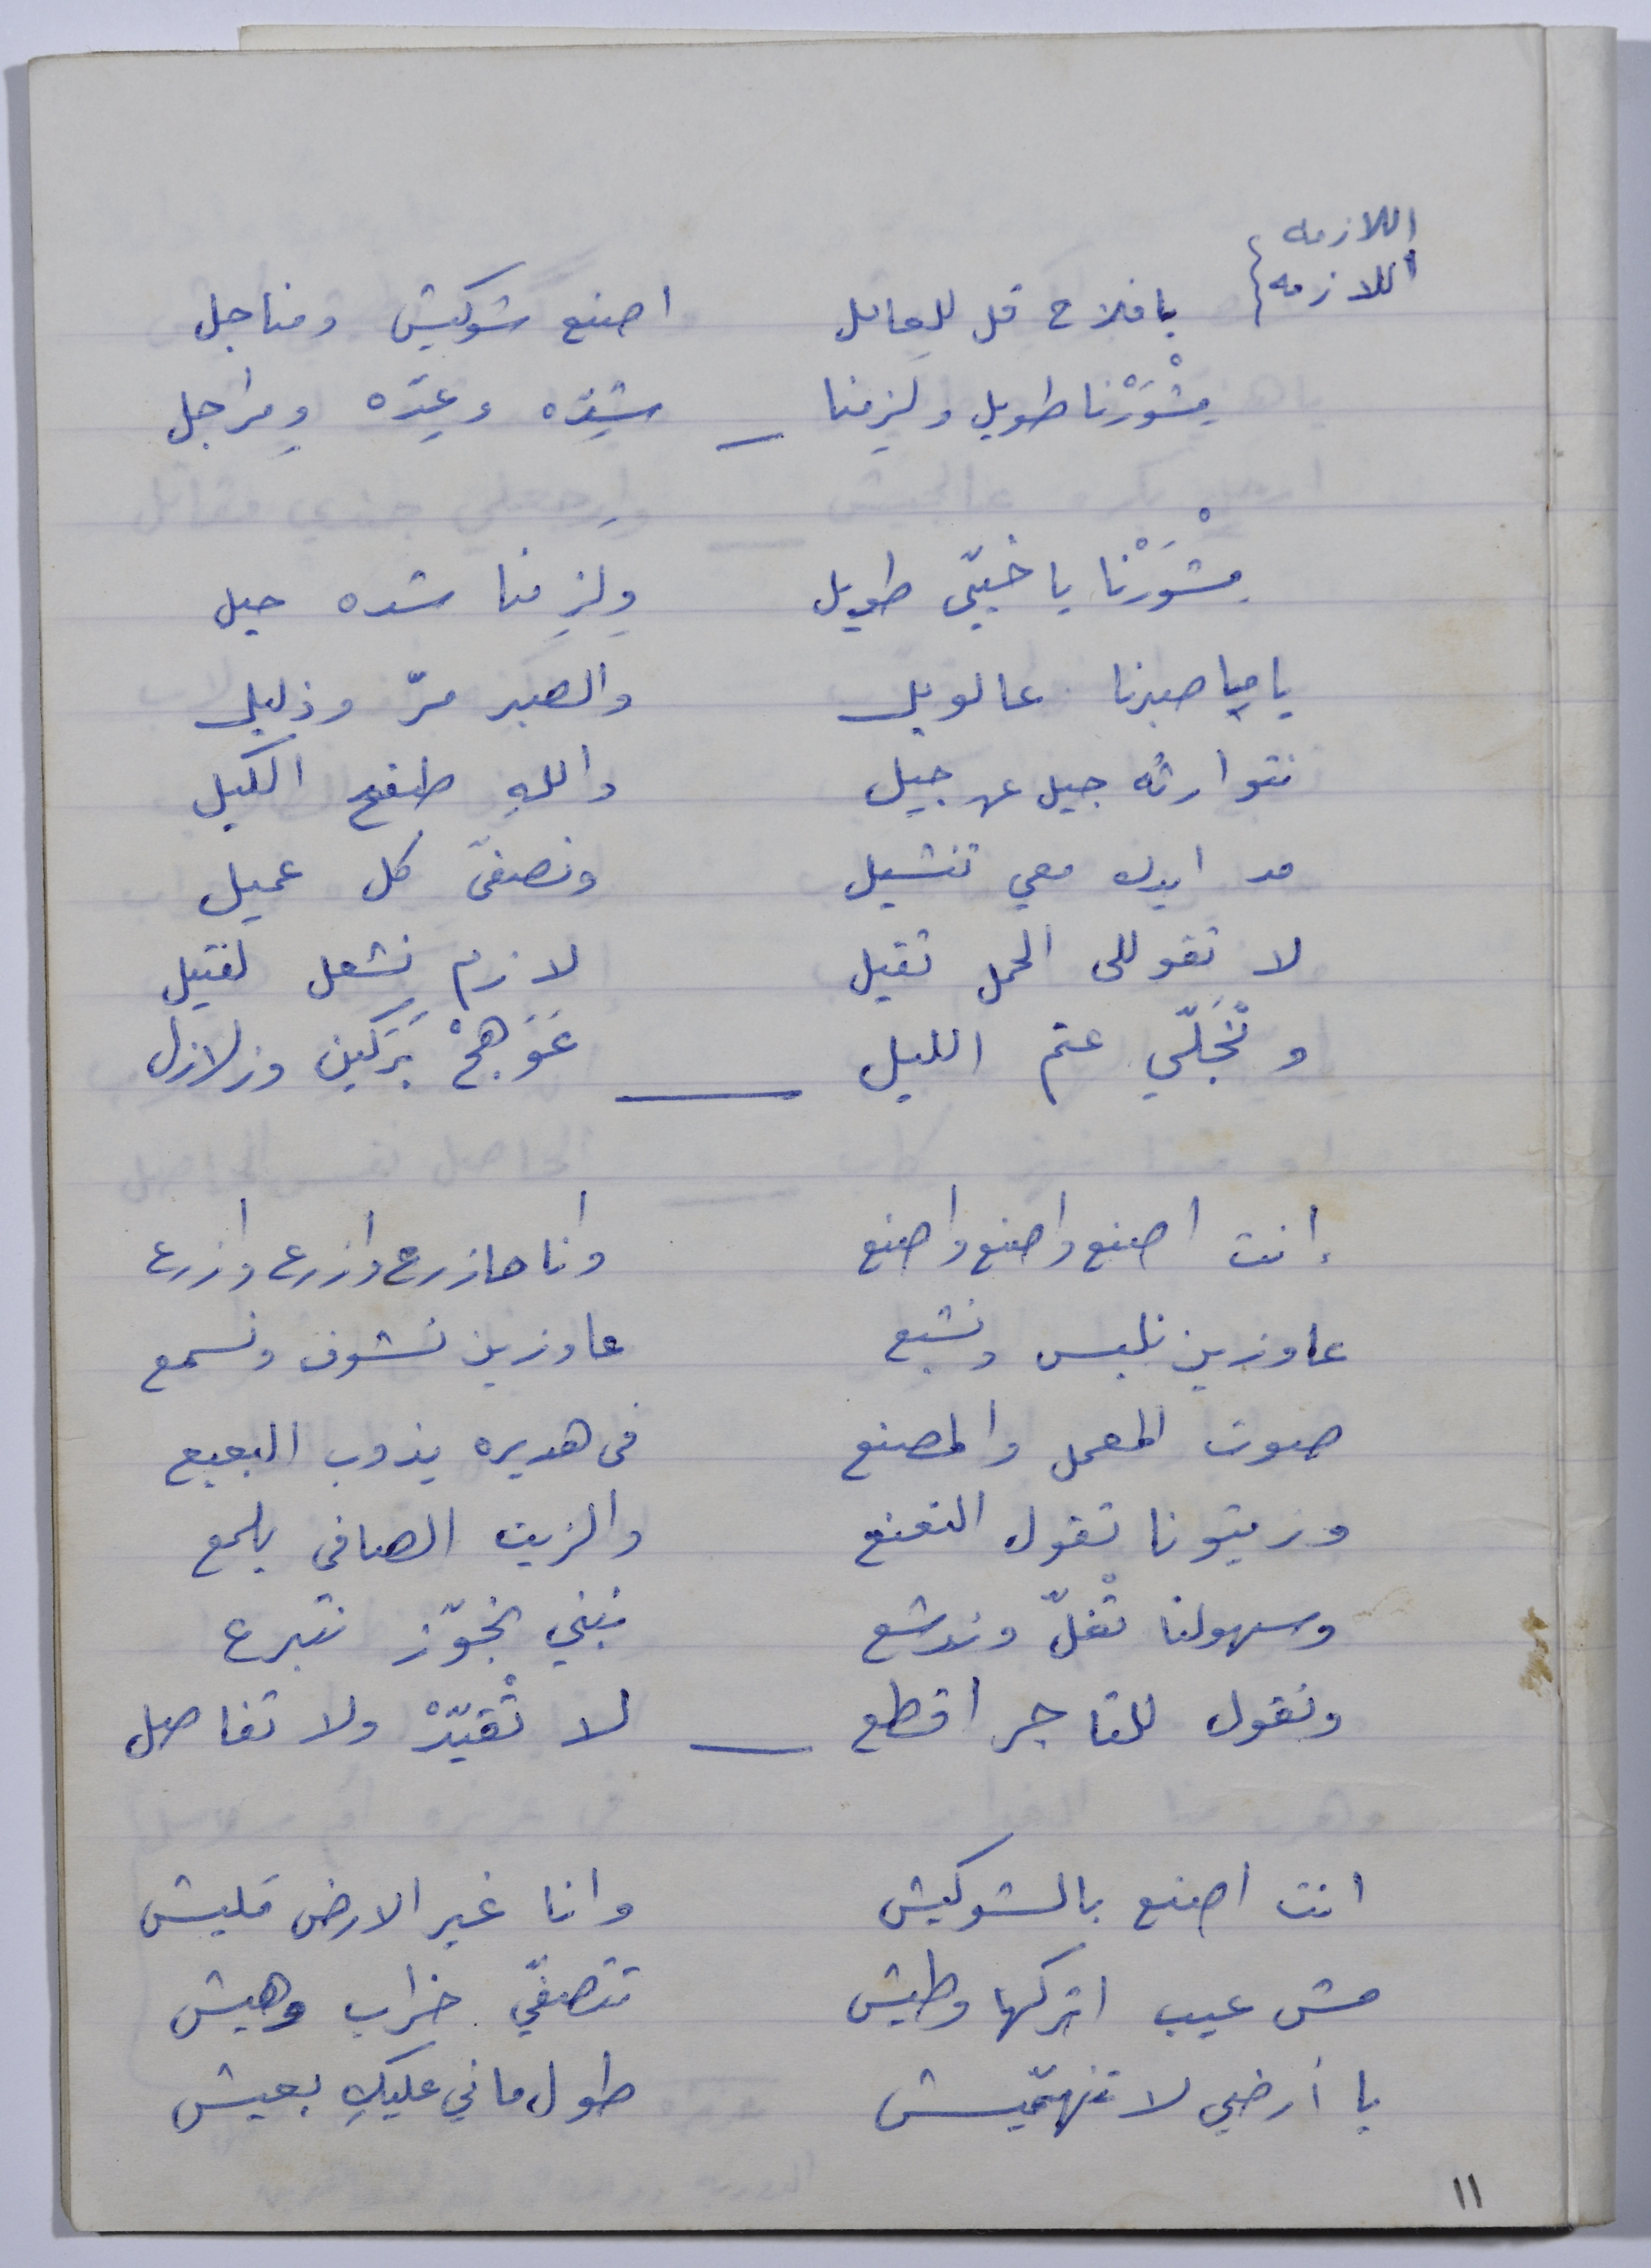 اللازمه
اللازمه { يا فلاح قل للعامل اصنع شوكيش ومناجل
مِشْوَرْنا طويل ولزِمنا — شِدّه وعِدّه ومراجل
مِشْوَرْنا يا خيّي طويل ولزِمنا شده حيل
ياما صبرنا عالويل والصبر مرّ وذليل
نتوارثه جيل عن جيل واللهِ طفح الكيل
مد ايدك معي تنشيل ونصفّي كل عميل
لا تقوللي الحمل تقيل لازم نِشعل لفتيل
ونْجَلّي عتم الليل — عَوَهجْ بَرَكين وزلازل
إنت اصنع واصنع واصنع وانا هازرع وازرع وازرع
عاوزين نلبس ونشبع عاوزين نشوف ونسمع
صوت المعمل والمصنع في هديره يذوب البعبع
وزيتونا تقول النعنع والزيت الصافي يلمع
وسهولنا تْغلّ وندشع نبني نجوّز نتبرع
ونقول للتاجر اقطع — لا تْقيّدْ ولا تفاصل
انت اصنع بالشوكيش وانا غير الارض مَليش
مش عيب اتركها وطيش تتصفّي خراب وهيش
يا أرضي لا تنهمّيش طول ماني عليكِ بعيش
١١